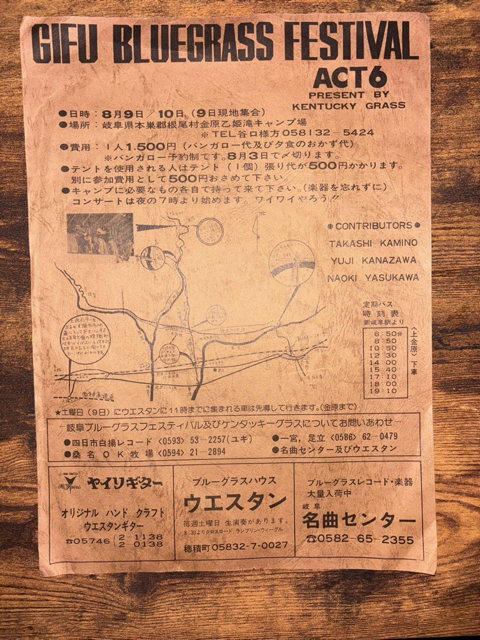 GIFU BLUEGRASS FESTIVAL
ACT6
PRESENT BY
KENTUCKY GRASS
●日時：8月9日／10日、（9日現地集合）
●場所：岐阜県本巣郡根尾村金原乙姫滝キャンプ場
※TEL谷口様方058132-5424
●費用：1人1.500円（バンガロー代及び夕食のおかず代）
※バンガロー予約制です。8月3日で〆切ります。
●テントを使用される人はテント（1個）張り代が500円かかります。
別に参加費用として500円おさめて下さい。
●キャンプに必要なもの各自で持って来て下さい。（楽器を忘れずに）
コンサートは夜の7時より始めます。ワイワイやろう!!
●CONTRIBUTORS●
TAKASHI KAMINO
YUJI KANAZAWA
NAOKI YASUKAWA
定期バス
時刻表
新岐阜駅より
6 50分
8 50
10 50
12 30
14 00
15 40
17 10
18 00
19 10
〈上金原〉下車
★土曜日（9日）にウエスタンに11時までに集まれる車は先導して行きます。（金原まで）
岐阜ブルーグラスフェスティバル及びケンタッキーグラスについてお問いあわせ
●四日市白揚レコード〈0593〉53-2257（ユキ）
●一宮，足立〈0586〉62-0479
●桑名OK牧場〈0594〉21-2894
●名曲センター及びウエスタン
ヤイリギター
オリジナル ハンド クラフト
ウエスタンギター
☎05746 2-1138
2-0138
ブルーグラスハウス
ウエスタン
毎週土曜日 生演奏があります。
穂積町05832-7-0027
ブルーグラスレコード・楽器
大量入荷中
岐阜
名曲センター
☎0582-65-2355